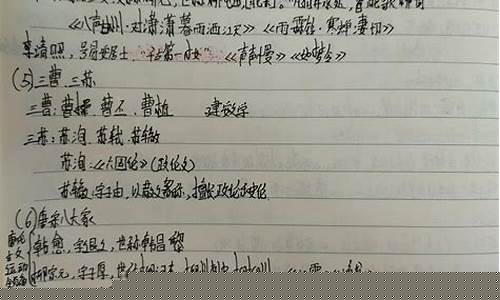 《八声甘州·对潇潇暮雨洒江天》《雨霖铃·寒蝉凄切》
李清照，号易安居士，"千古第一才女" 《声声慢》《如梦令》
(5) 三曹 三苏
三曹：曹操 曹丕 曹植 建安文学
三苏：苏洵 苏轼 苏辙
苏洵：《六国论》(政论文)
苏辙，字子由，以散文著称，擅长政论和史论
(6) 唐宋八大家
韩愈，字退之，世称韩昌黎
柳宗元，字子厚，世称